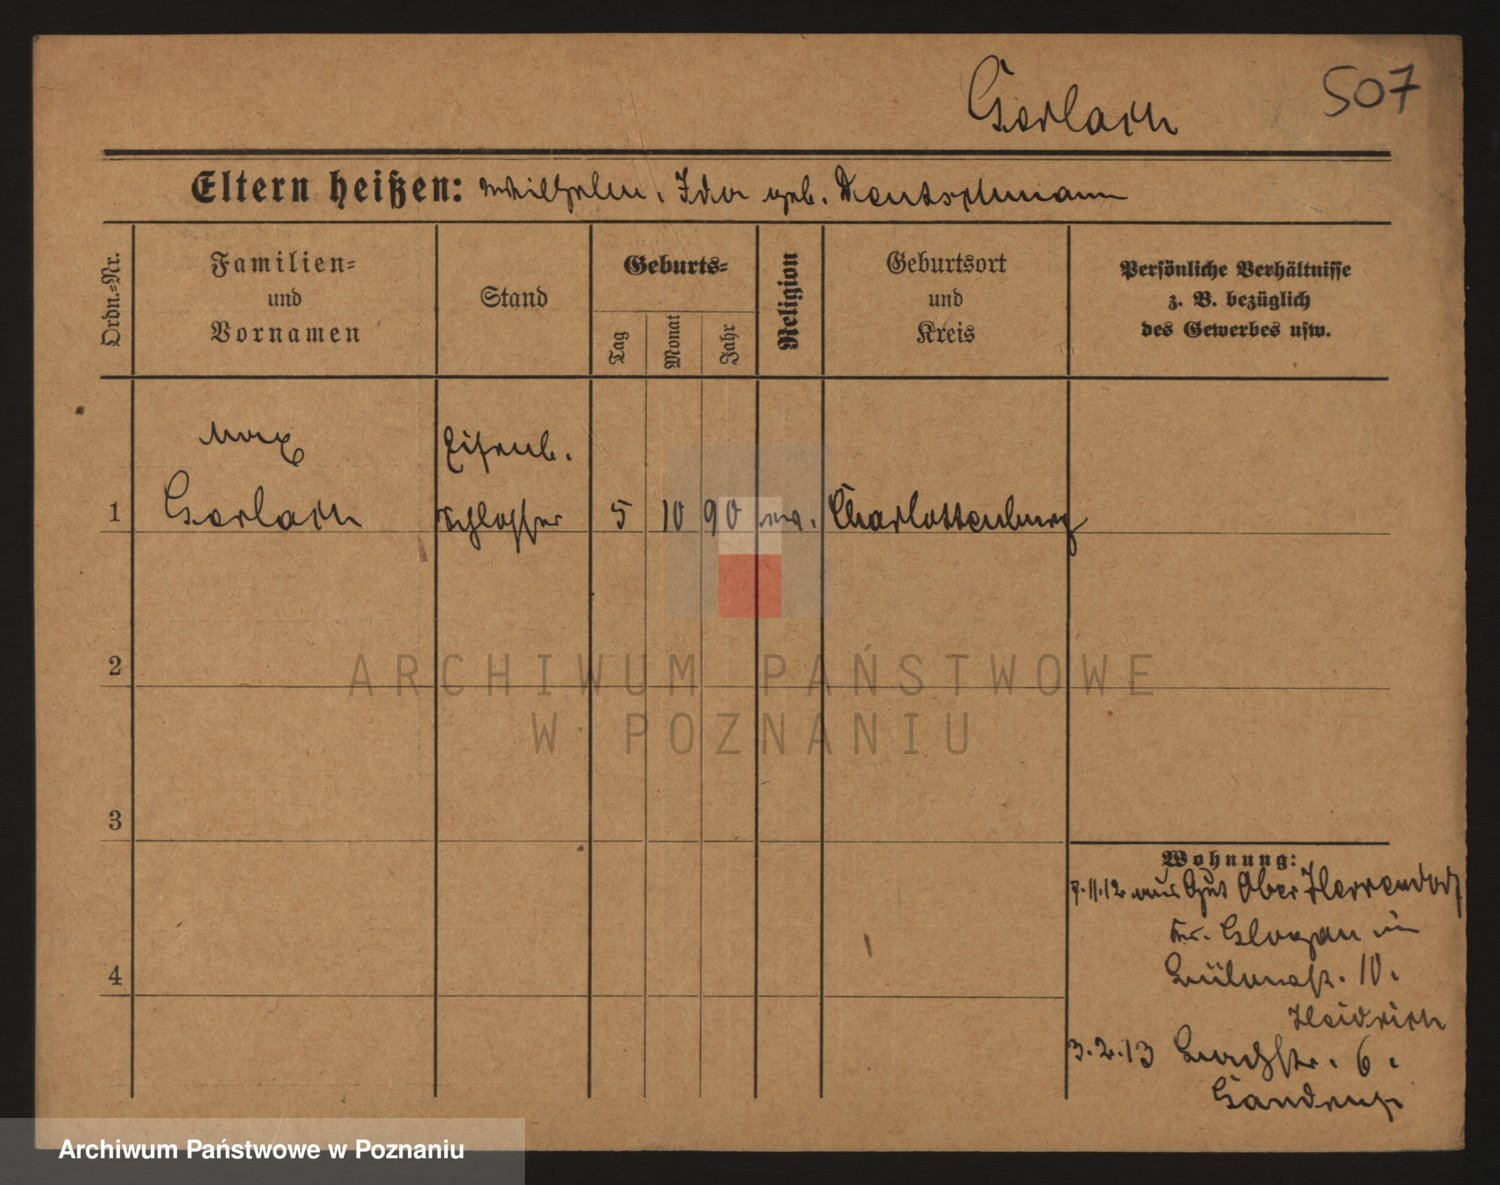 Gerlach
507
Eltern heißen: Wilhelm, Ida geb. Deutschmann
Ordn.-Nr.
Familien-
und
Vornamen
Stand
Geburts-
Tag
Monat
Jahr
Religion
Geburtsort
und
Kreis
Persönliche Verhältnisse
z. B. bezüglich
des Gewerbes usw.
Max Eisenb.
1 Gerlach Schlosser 5 10 90 ev. Charlottenburg
2
3
4
Wohnung:
7.11.12 aus Gut Ober Herrendorf
Kr. Glogau in
10.
Heidrich
3.2.13 Bachstr. 6.
ARCHIWUM PAŃSTWOWE
W POZNANIU
Archiwum Państwowe w Poznaniu